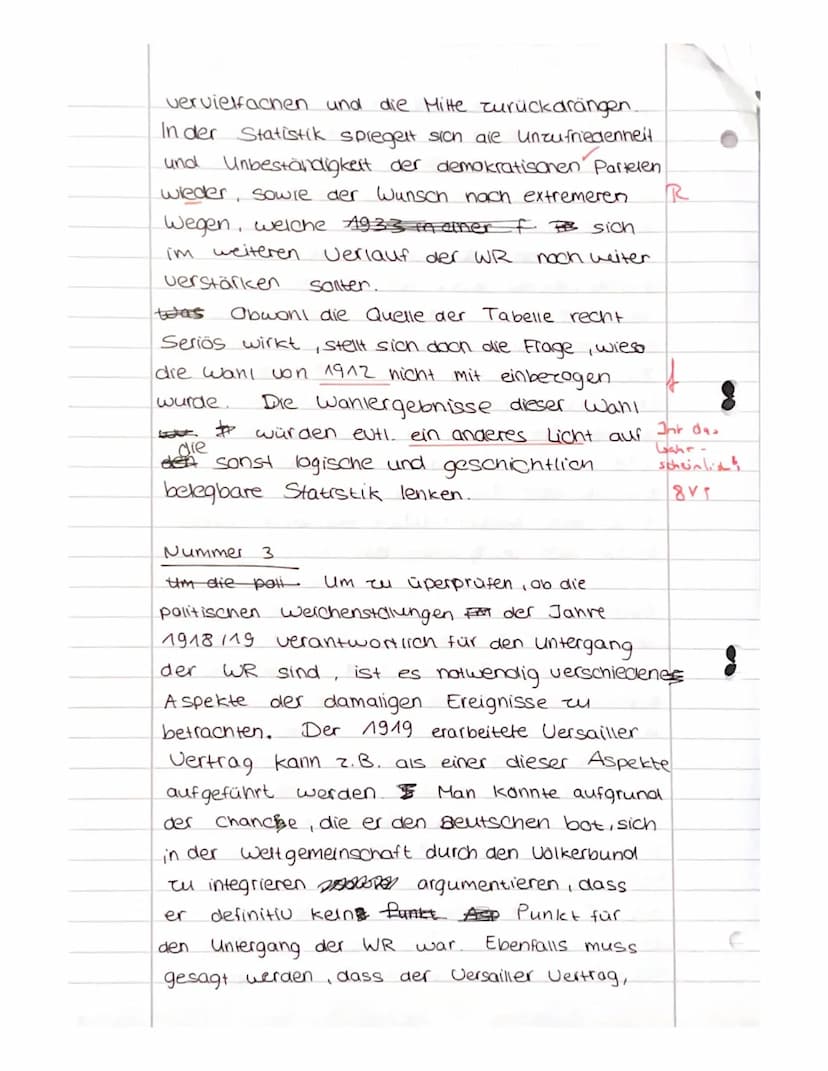 vervielfachen und die Mitte zurückdrängen.
In der Statistik spiegelt sich die Unzufriedenheit
und Unbeständigkeit der demokratischen Parteien
wieder, sowie der Wunsch nach extremeren R
Wegen, welche 1933 in einer f sich
im weiteren Verlauf der WR noch weiter
verstärken sollten.
Was Obwohl die Quelle der Tabelle recht
Seriös wirkt, stellt sich doch die Frage, wieso
die Wahl von 1912 nicht mit einbezogen
wurde. Die Wahlergebnisse dieser Wahl
würden evtl. ein anderes Licht auf
die
den sonst logische und geschichtlich
belegbare Statistik lenken.
Nummer 3
Um die poli Um zu üperprüfen, ob die
politischen Weichenstellungen der Jahre
1918/19 verantwortlich für den Untergang
der WR sind, ist es notwendig verschiedene
Aspekte der damaligen Ereignisse zu
betrachten. Der 1919 erarbeitete Versailler
Vertrag kann z.B. als einer dieser Aspekte
aufgeführt werden. Man könnte aufgrund
der Chance, die er den Deutschen bot, sich
in der Weltgemeinschaft durch den Völkerbund
zu integrieren argumentieren, dass
er definitiv kein Punkt Asp Punkt für
den Untergang der WR war. Ebenfalls muss
gesagt werden, dass der Versailler Vertrag,